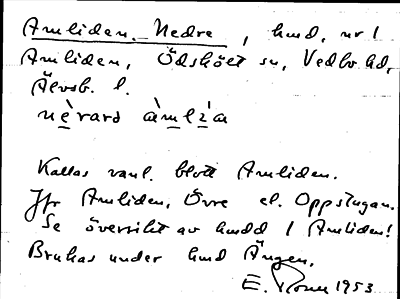 Amliden, Nedre, hmd, nr 1
Amliden, Ödskölt sn, Vedbo hd,
Älvsb. l.
nè̱rarə àmlɩ̱a
Kallas vanl. blott Amliden.
Jfr Amliden, Övre el. Oppstugan.
Se översikt av hmdd i Amliden!
Brukas under hmd Ängen.
E. 1953